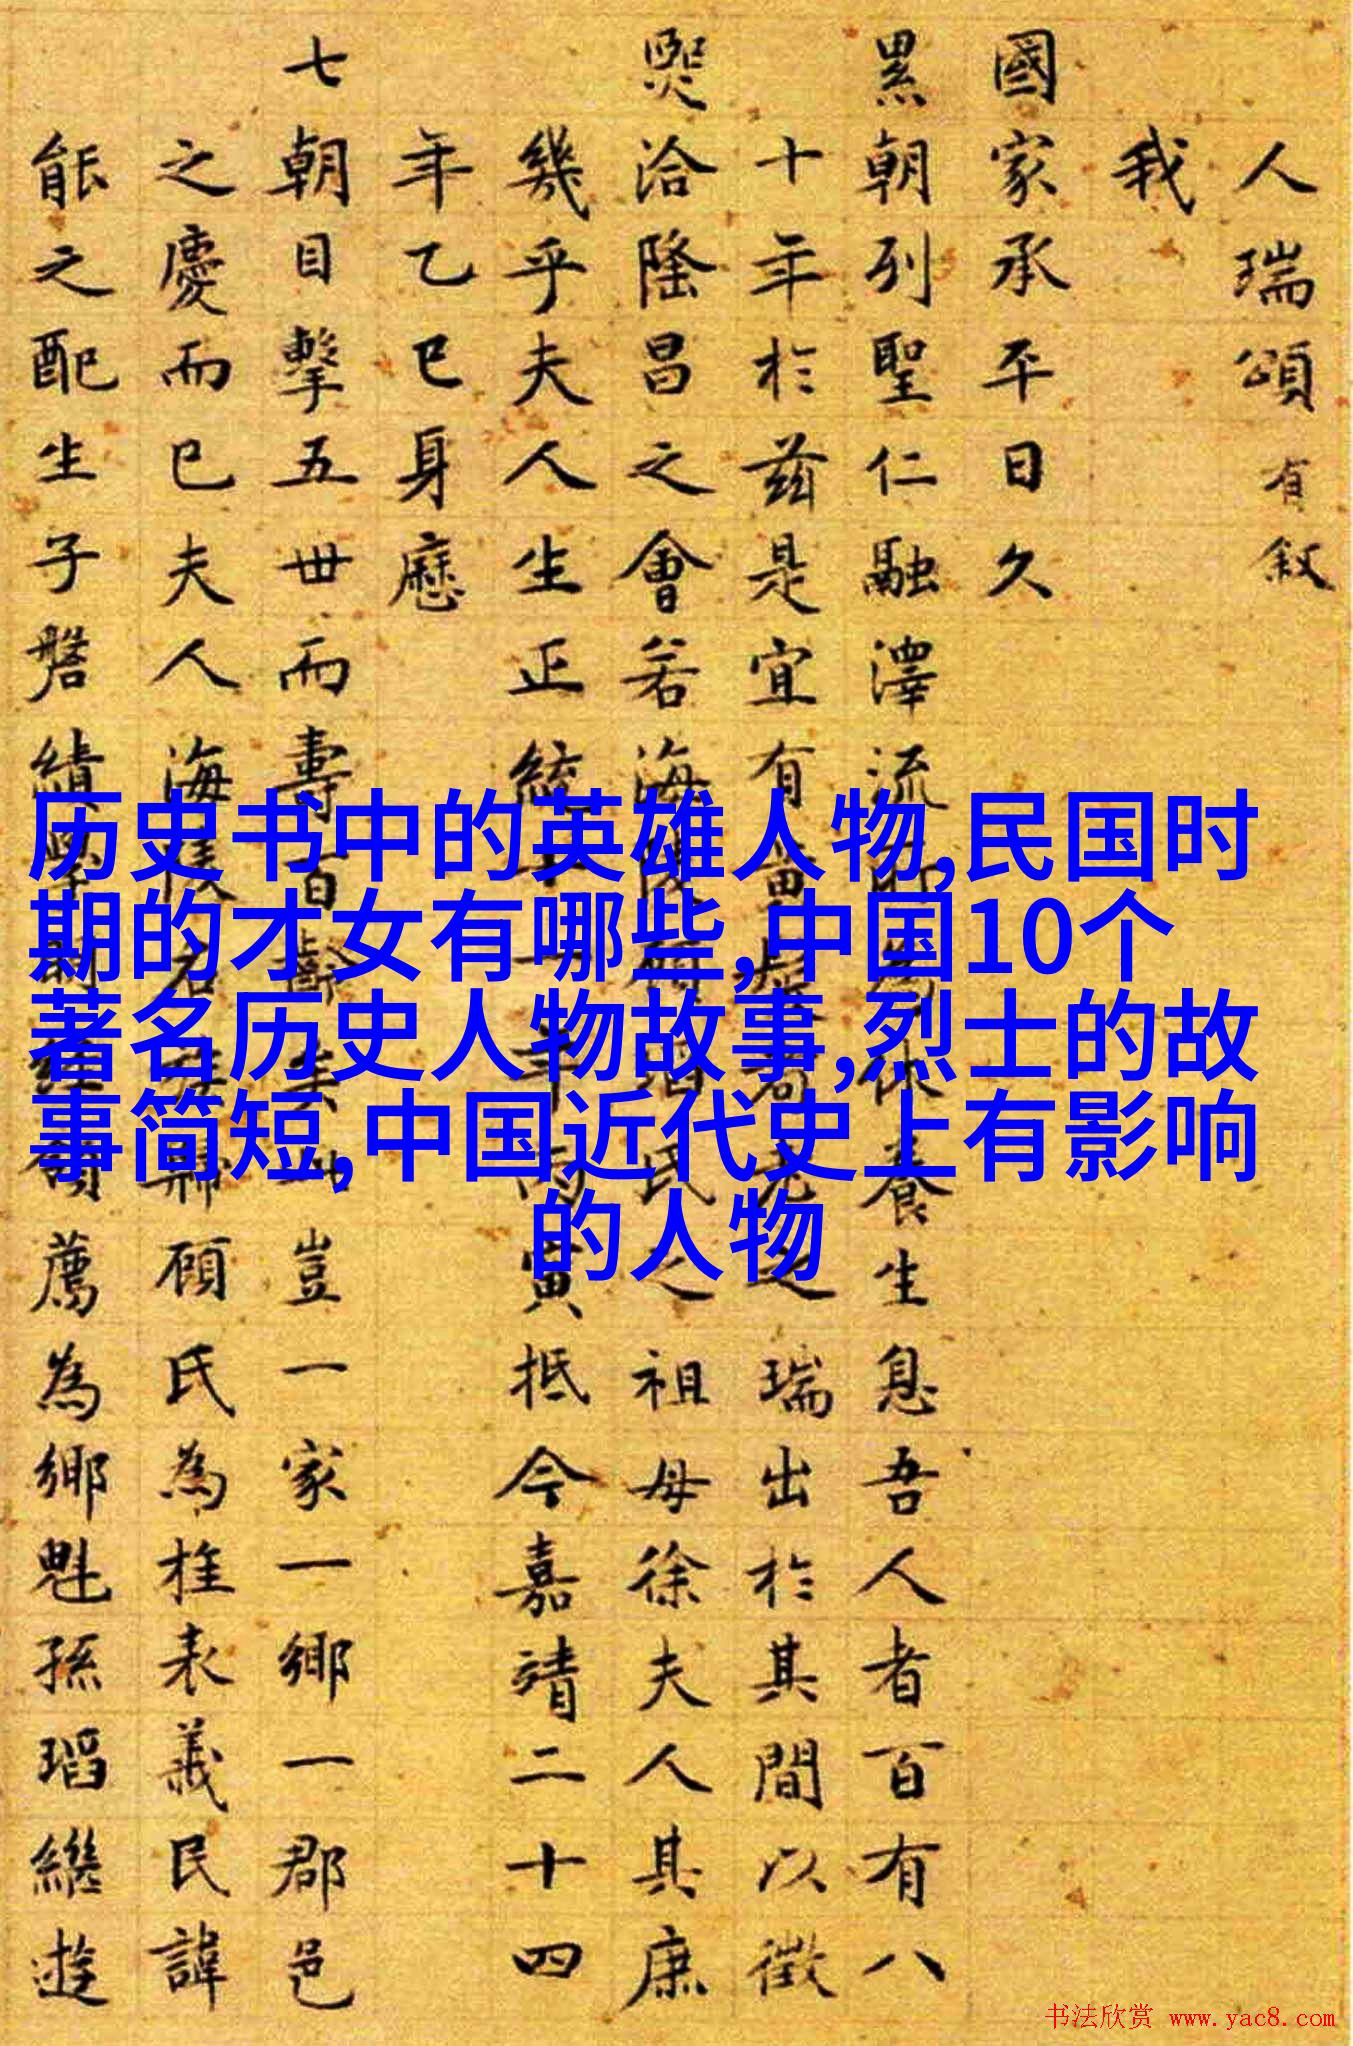 人瑞頌 有叙
我
國家承平日久
累朝列聖仁融澤流休養生息吾人者百有八
十年於茲是宜有之瑞出於其間以徵
熙洽隆昌之會若海虞顧瑫氏之祖母徐夫人其庶
幾乎夫人生正統十一年丙寅抵今嘉靖二十四
年乙巳身歷
七朝目擊五世而壽百齡矣豈一家一鄉一郡邑
之慶而已夫人海虞名族歸顧氏為桂表義民諱
能之配生子磐績學明經領薦為鄉魁孫瑫繼遊
历史书中的英雄人物,民国时
期的才女有哪些,中国10个
著名历史人物故事,烈士的故
事简短,中国近代史上有影响
的人物
书法欣赏 www.yac8.com